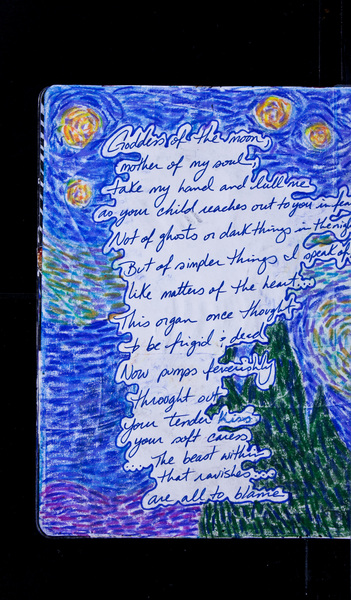 Goddess of the moon,
mother of my soul,
take my hand and lull me
as your child reaches out to you in fea
Not of ghosts or dark things in the nigh
But of simpler things I speak of
like matters of the heart...
This organ once thought
to be frigid & dead
Now pumps feverishly
throught out
your tender kiss
your soft caress
... The beast within
that ravishes...
are all to blame